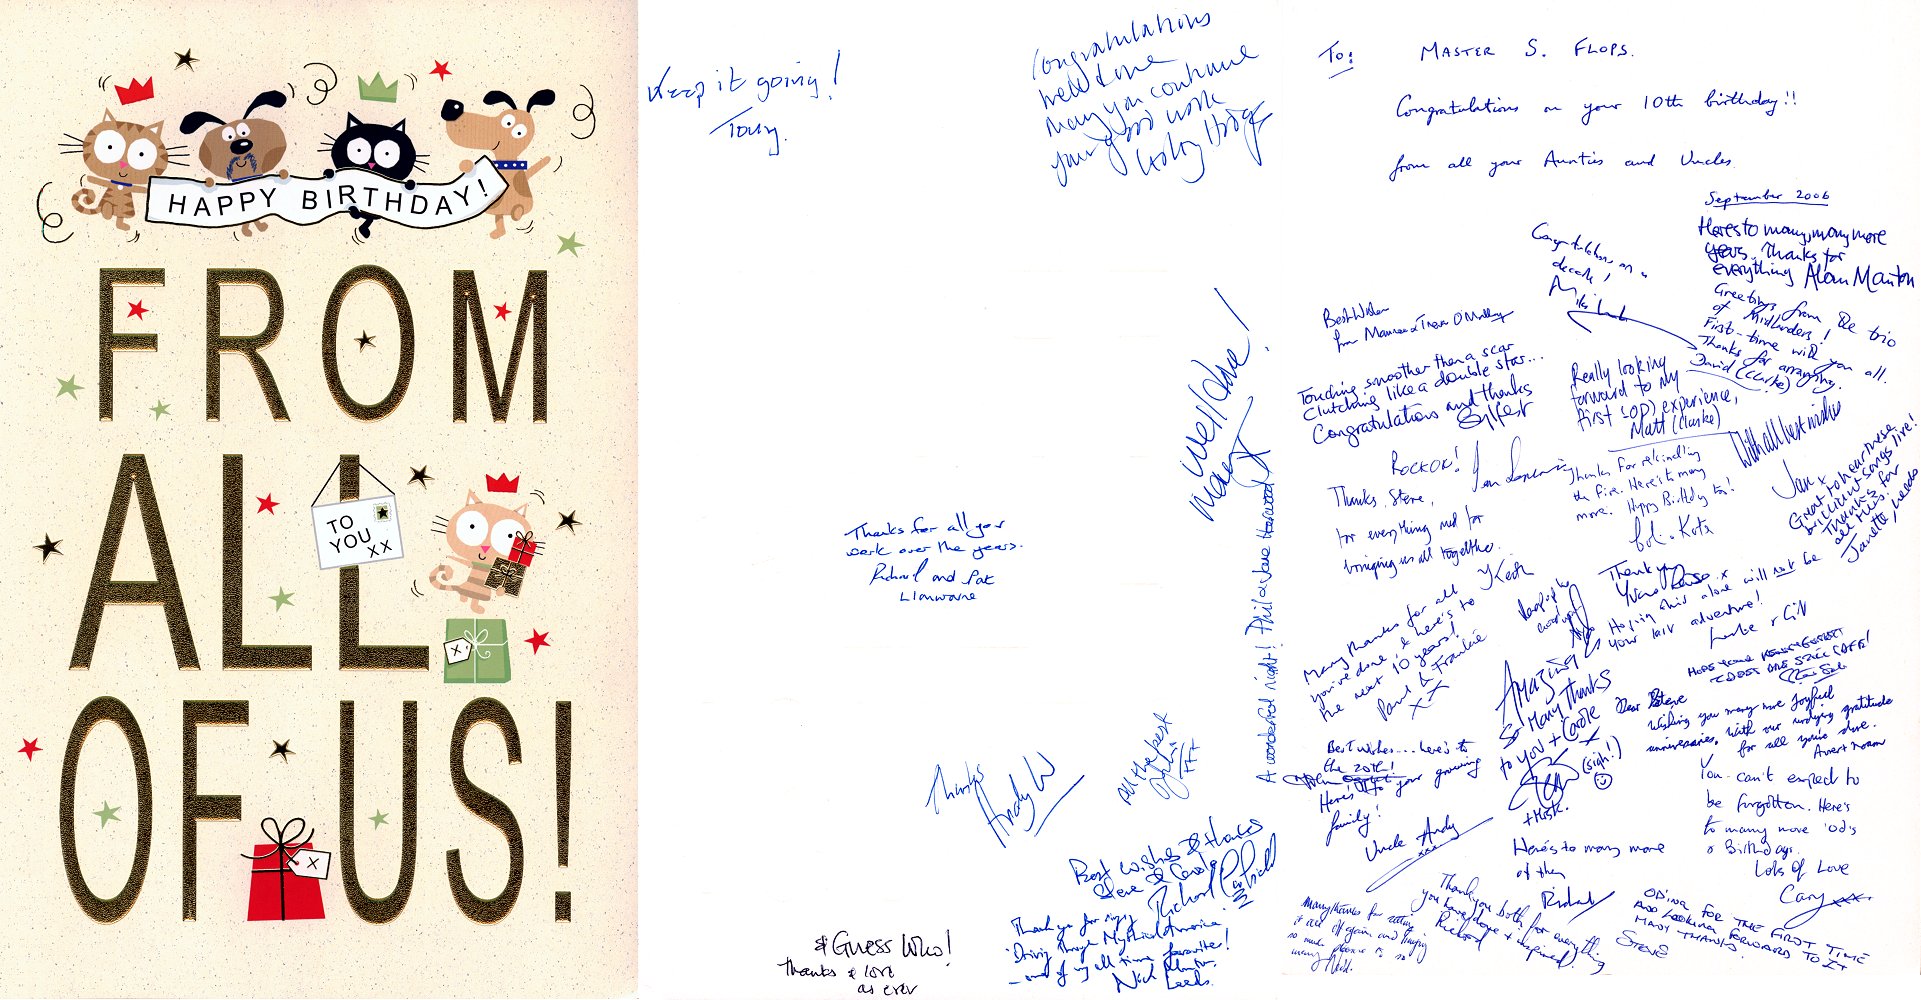 HAPPY BIRTHDAY!
FROM
ALL
OF US!
TO
YOU
XX
X
X
Keep it going!
Tony.
Congratulations
well done
may you continue
your good work
To: MASTER S. FLOPS.
Congratulations on your 10th birthday!!
from all your Aunties and Uncles.
September 2006
Heres to many, many more
years. Thanks for
everything Alan Manton
Congratulations on a
decade!
Greetings from the trio
of Midlanders!
First-time with you all.
Thanks for arranging.
David (Clarke)
Best Wishes
from Maureen & Trevor O'Malley
Touching smoother than a scar
Clutching like a double star...
Congratulations and thanks
Really looking
forward to my
first experience,
Matt (Clarke)
With all best wishes
Jan x
Well done!
Mary X
ROCK ON!
Thanks, Steve,
for everything and for
bringing us all together.
Keith
Thanks for rekindling
the fire. Here's to many
more. Happy Birthday too!
Great to hear these
brilliant songs live!
Thanks for
all this.
Janette,
Thanks for all your
work over the years.
Richard and Pat
A wonderful night! Phil & Jane
Thank you
Hoping this alone will not be
your last adventure!
Many thanks for all
you've done, & here's to
the next 10 years!
Paul & Frankie
XX
AMAZING
So Many Thanks
to you + Carole
X
(sigh!)
Dear Steve
Wishing you many more joyful
anniversaries, with our undying gratitude
for all you've done.
Best wishes... here's to
the 20th!
Here's to your growing
family!
Uncle Andy
xxx
You can't expect to
be forgotten. Here's
to many more 'Od's
& Birthdays.
Lots of Love
Cary xxx
Thanks
Andy W
All the best
Best wishes & thanks
Steve & Carole
Richard
Here's to many more
of them
Richard
Thank you for
'Driving Through Mythical America'
- one of my all time favourite!
Nick
Leeds.
& Guess Who!
Thanks & love
as ever
Many thanks for setting
it all off again and bringing
so much pleasure to so
many
Thank you both for everything
you have done + inspired.
Richard
ODING FOR THE FIRST TIME
AND LOOKING FORWARD TO IT
MANY THANKS.
STEVE